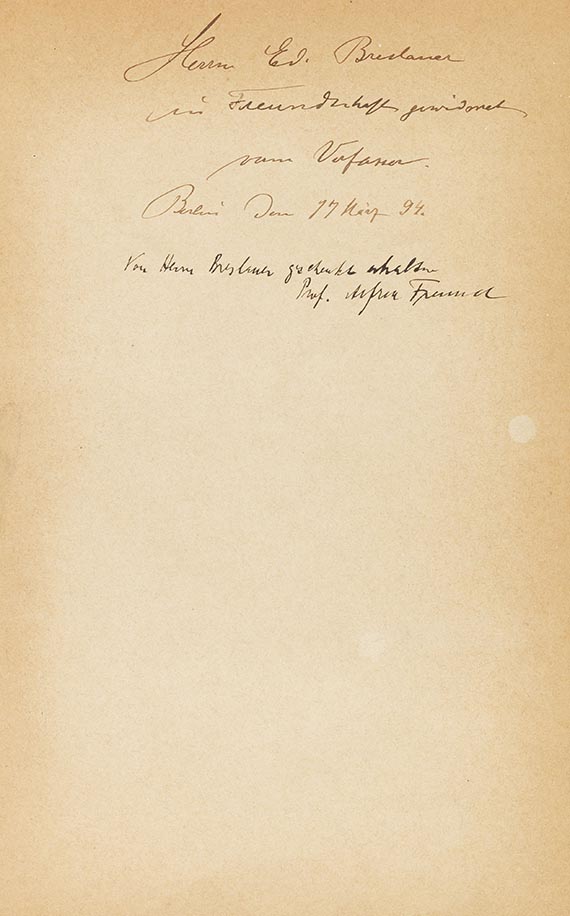 Herrn Ed. Breslauer
in Freundschaft gewidmet
vom Verfasser.
Berlin den 17 März 94.
Von Herrn Breslauer geschenkt erhalten
Prof. Alfred Freund